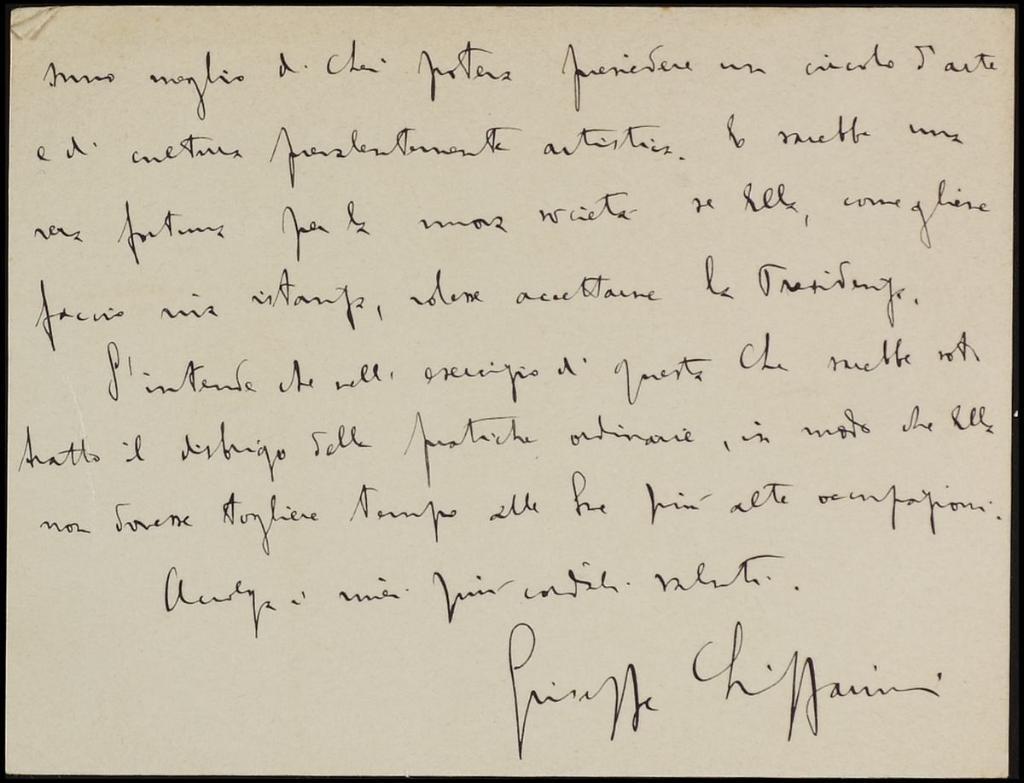 suno meglio di Lei poteva presiedere un circolo d'arte
e di cultura prevalentemente artistica. E sarebbe una
vera fortuna per la nuova società se Ella, come gliene
faccio viva istanza, volesse accettarne la Presidenza.
S'intende che nell'esercizio di questa Le sarebbe sot
tratto il disbrigo delle pratiche ordinarie, in modo che Ella
non dovesse togliere tempo alle Sue più alte occupazioni.
Accolga i miei più cordiali saluti.
Giuseppe Lipparini